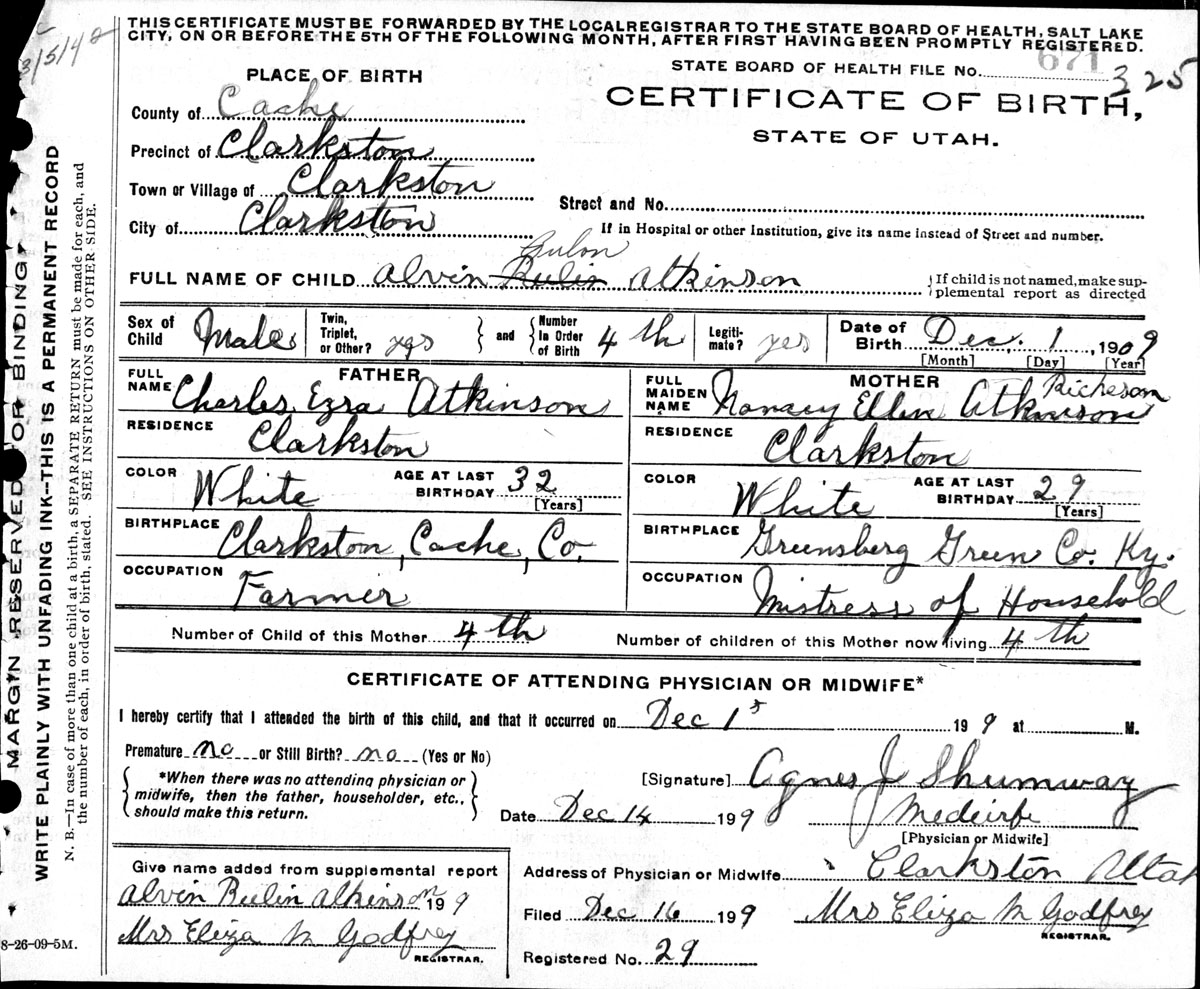 THIS CERTIFICATE MUST BE FORWARDED BY THE LOCAL REGISTRAR TO THE STATE BOARD OF HEALTH, SALT LAKE
CITY, ON OR BEFORE THE 5TH OF THE FOLLOWING MONTH, AFTER FIRST HAVING BEEN PROMPTLY REGISTERED.
671
STATE BOARD OF HEALTH FILE No. 325
PLACE OF BIRTH
CERTIFICATE OF BIRTH,
STATE OF UTAH.
County of Cache
Precinct of Clarkston
Town or Village of Clarkston
Street and No.
City of Clarkston
If in Hospital or other Institution, give its name instead of Street and number.
Bulon
FULL NAME OF CHILD Alvin Rulin Atkinson
If child is not named, make sup-
plemental report as directed
Sex of Child Male
Twin, Triplet, or Other? yes
and Number In Order of Birth 4th
Legiti-mate? yes
Date of Birth Dec. 1, 1909
[Month] [Day] [Year]
FATHER
FULL NAME Charles Ezra Atkinson
RESIDENCE Clarkston
COLOR White AGE AT LAST BIRTHDAY 32 [Years]
BIRTHPLACE Clarkston, Cache, Co.
OCCUPATION Farmer
MOTHER
Richeson
FULL MAIDEN NAME Nancy Ellen Atkinson
RESIDENCE Clarkston
COLOR White AGE AT LAST BIRTHDAY 29 [Years]
BIRTHPLACE Greensberg Green Co. Ky.
OCCUPATION Mistress of Household
Number of Child of this Mother 4th Number of children of this Mother now living 4th
CERTIFICATE OF ATTENDING PHYSICIAN OR MIDWIFE*
I hereby certify that I attended the birth of this child, and that it occurred on Dec 1st 199 at M.
Premature no or Still Birth? no (Yes or No)
*When there was no attending physician or
midwife, then the father, householder, etc.,
should make this return.
[Signature] Agnes J Shumway
Date Dec 14 199 Medwife
[Physician or Midwife]
Give name added from supplemental report
Alvin Rulin Atkinson 199
Mrs Eliza M Godfrey
REGISTRAR.
Address of Physician or Midwife Clarkston Utah
Filed Dec 16 199 Mrs Eliza M Godfrey
REGISTRAR.
Registered No. 29
8-26-09-5M.
MARGIN RESERVED FOR BINDING
WRITE PLAINLY WITH UNFADING INK—THIS IS A PERMANENT RECORD
N. B.—In case of more than one child at a birth, a SEPARATE RETURN must be made for each, and
the number of each, in order of birth, stated. SEE INSTRUCTIONS ON OTHER SIDE.